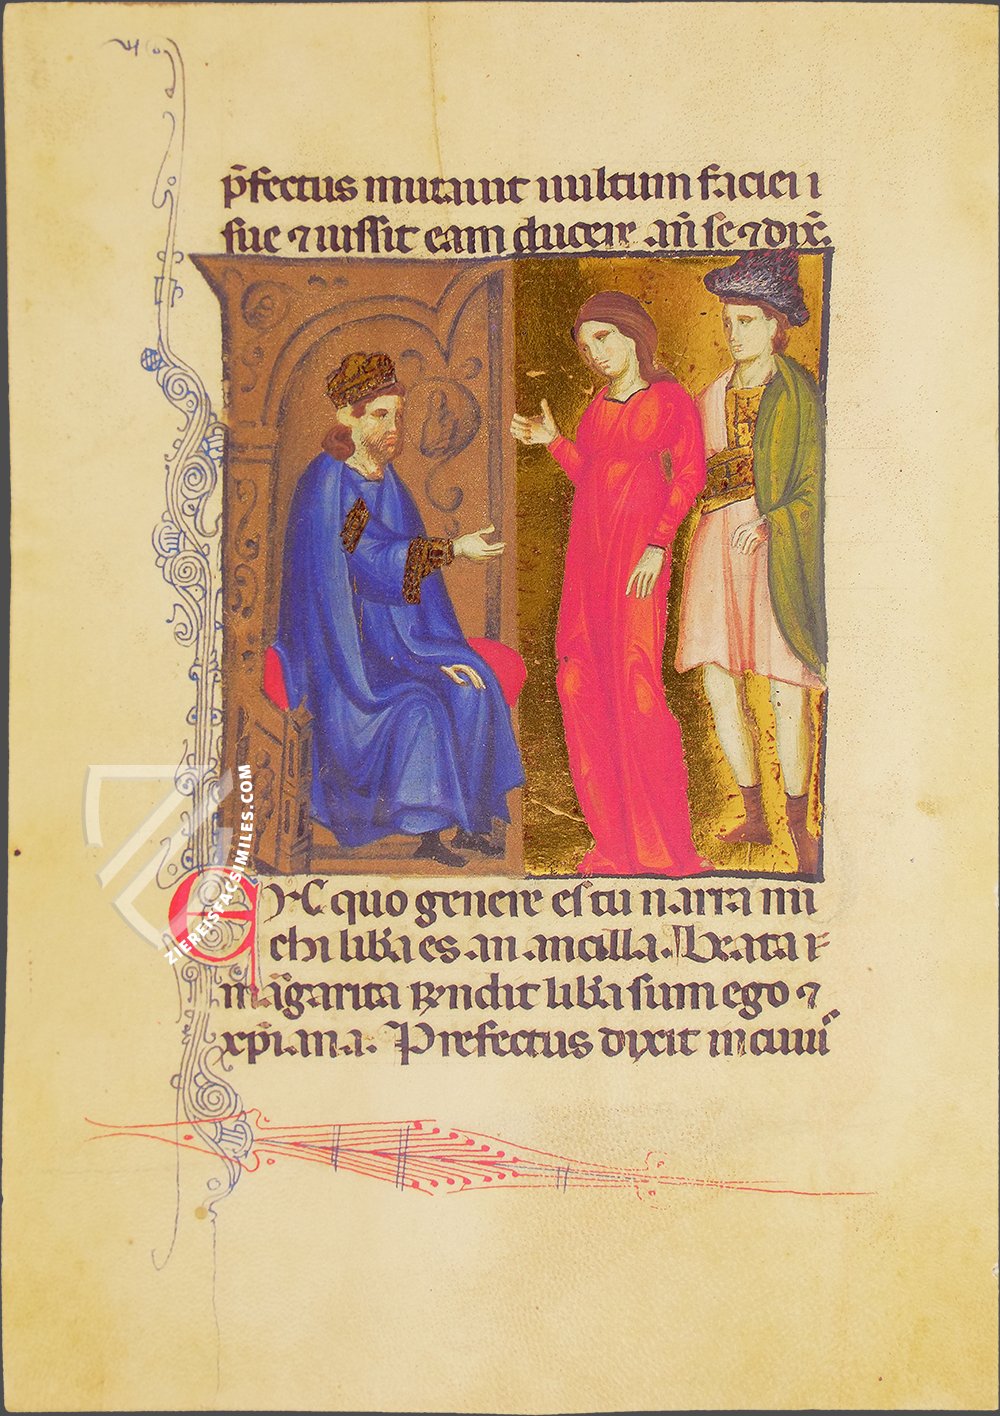 p̄fectus mutauit uultum faciei ı
sue ⁊ iussit eam ducere an̄ se ⁊ dix̄.
Ex quo genere es tu narra mi
chi lib̄a es an ancilla. Beata
mar̄garita Rn̄dit lib̄a sum ego ⁊
xp̄iana. Prefectus dixit in cuiuˢ
ZIEREISFACSIMILES.COM